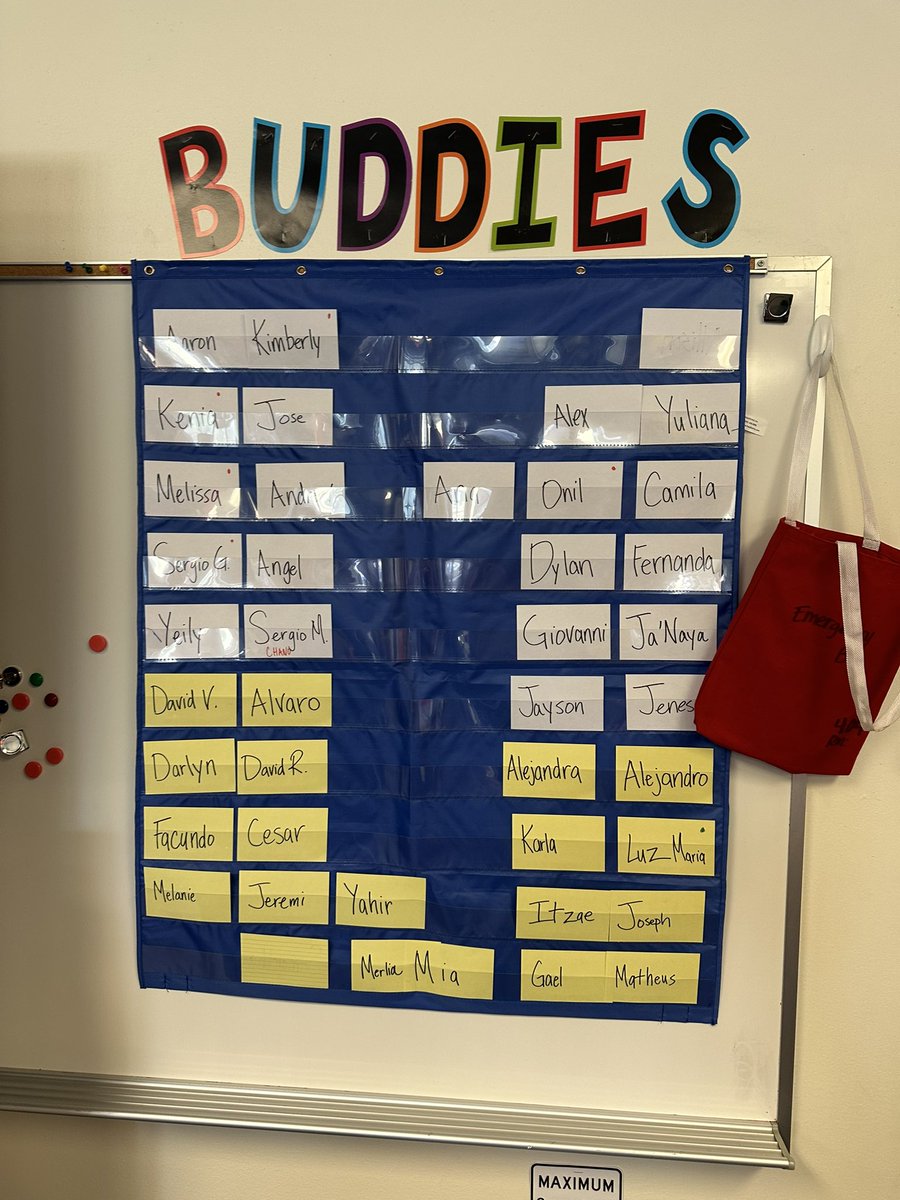 BUDDIES
Aaron Kimberly
Kenia Jose Alex Yuliana
Melissa Ana Onil Camila
Sergio G. Angel Dylan Fernanda
Yeily Sergio M. Giovanni Ja'Naya
CHANG
David V. Alvaro Jayson Jenes
Darlyn David R. Alejandra Alejandro
Facundo Cesar Karla Luz Maria
Melanie Jeremi Yahir Itzae Joseph
Merlia Mia Gael Matheus
Emergency
MAXIMUM